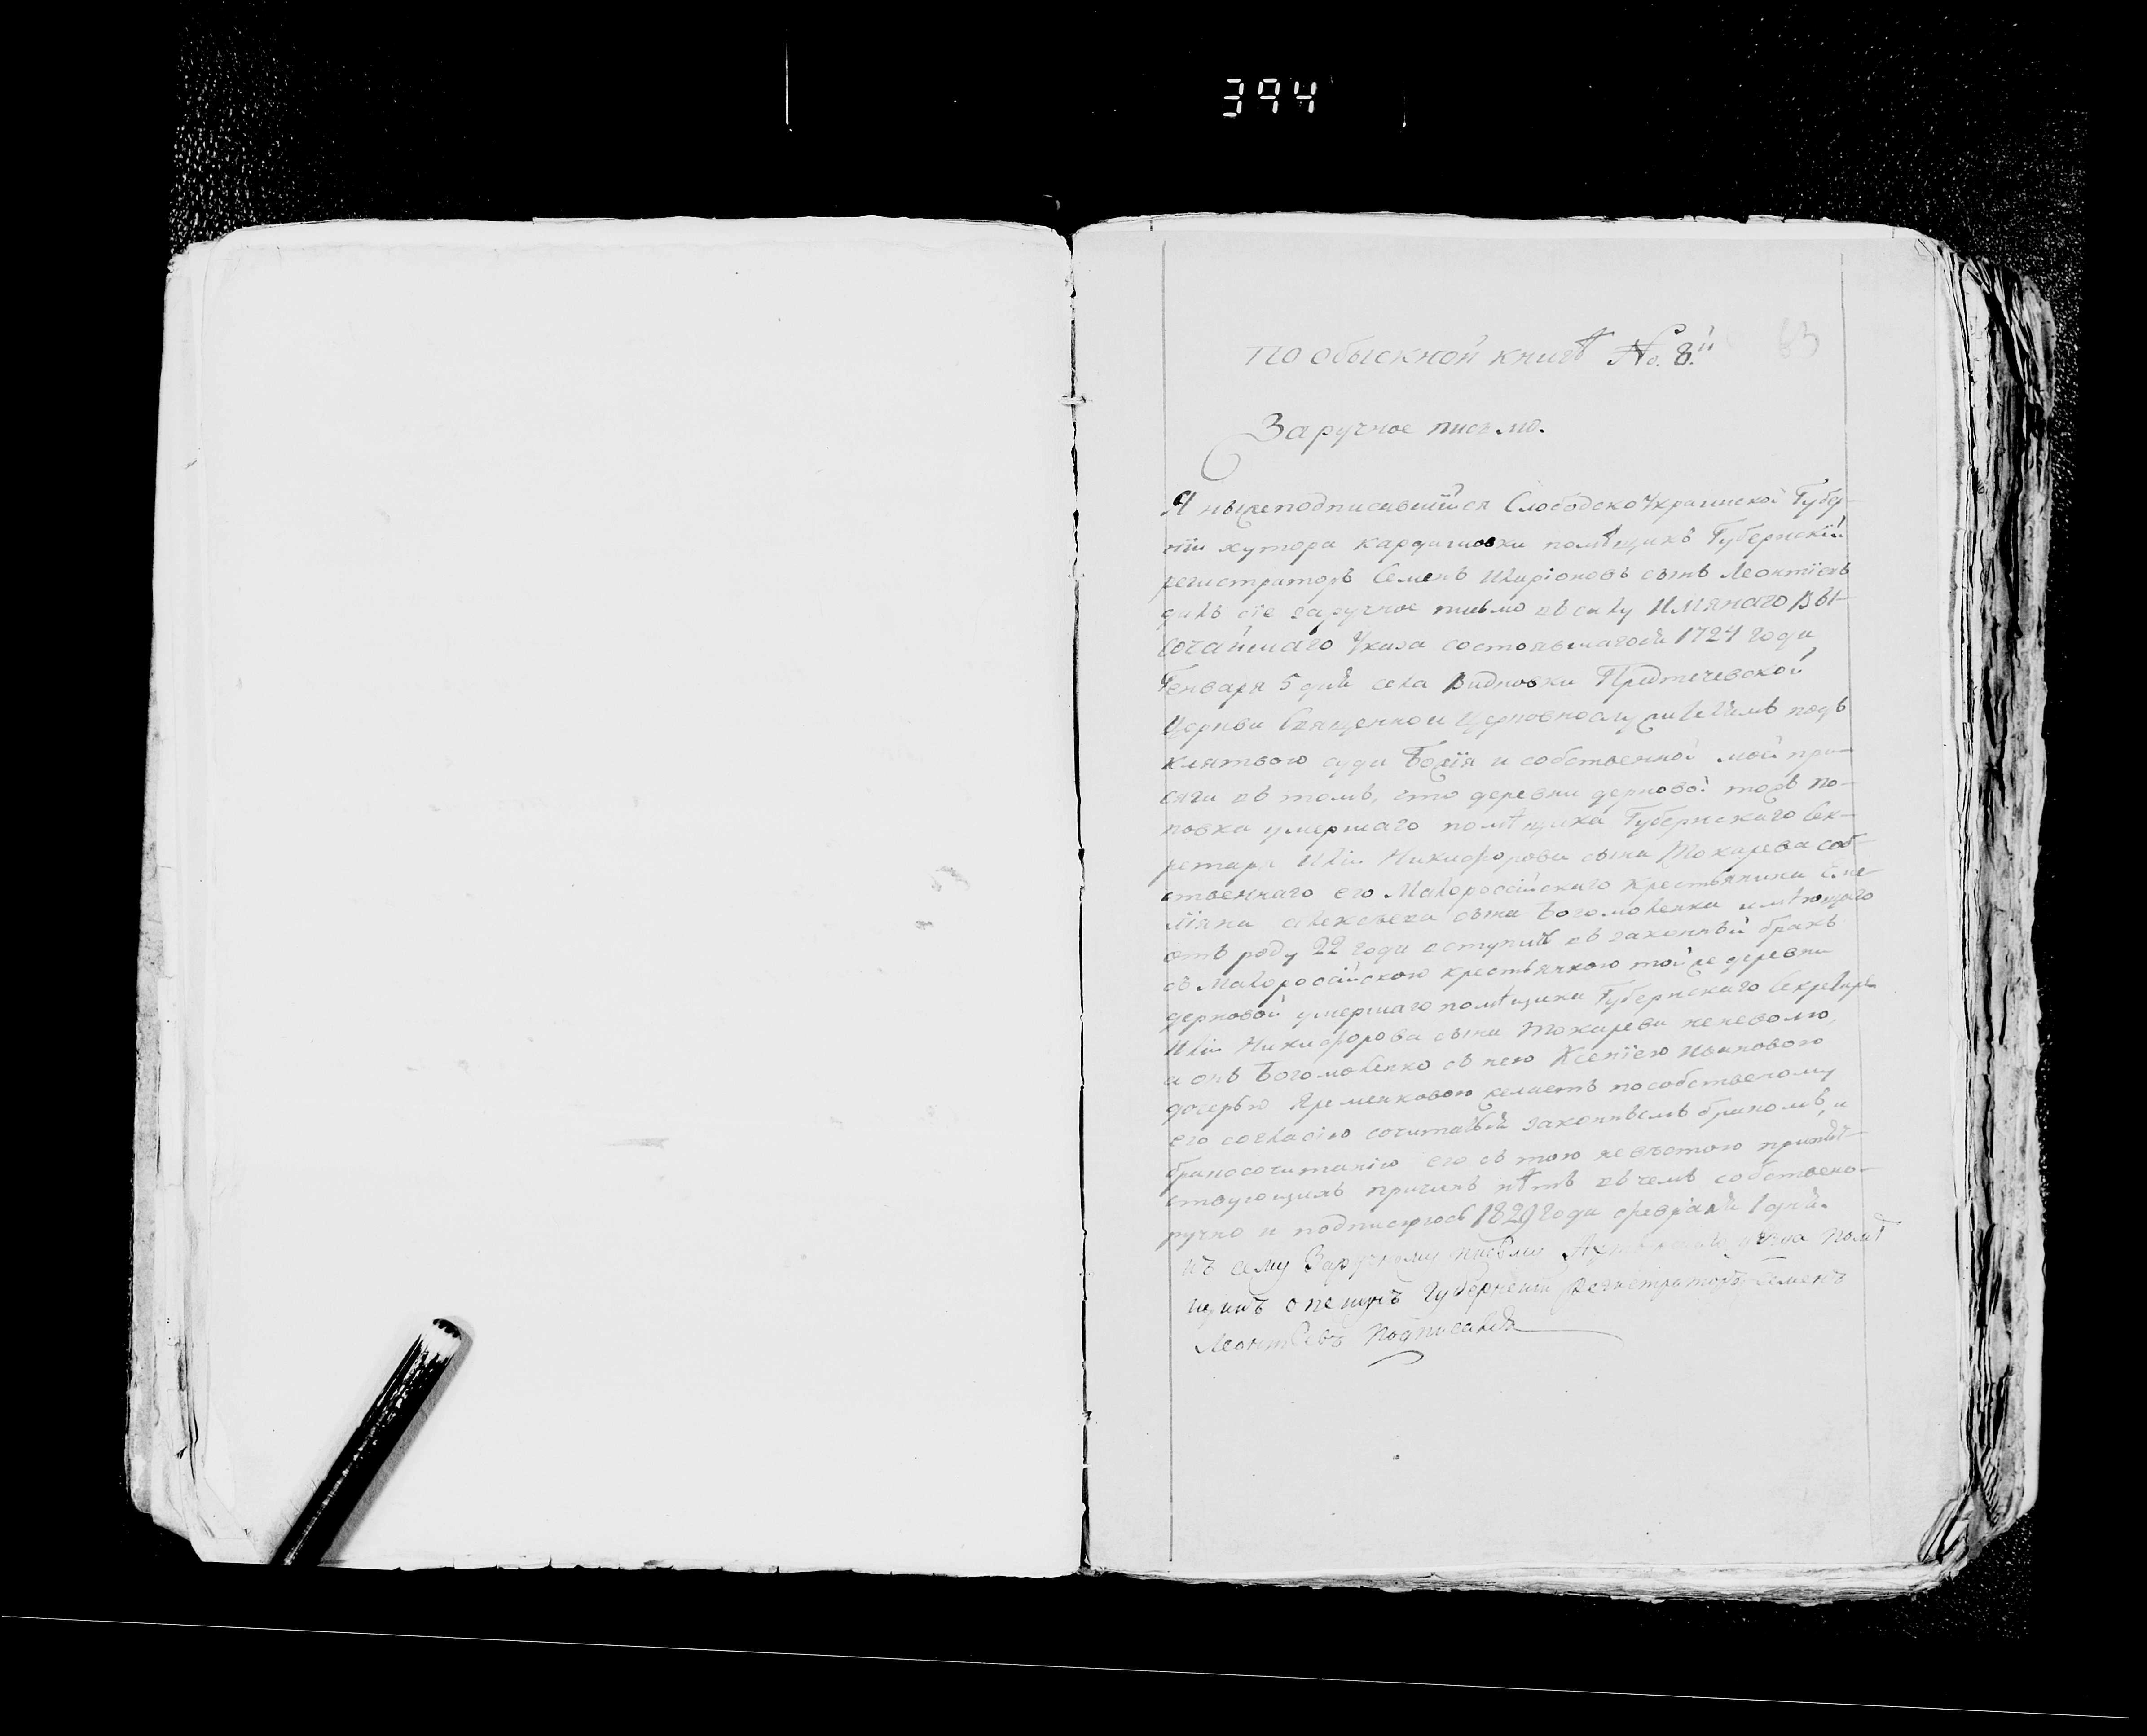 394
63
По обыскной книгѣ №. 8.й
Заручное письмо.
Я нижеподписавшійся Слободско Украинской Губер-
ніи хутора помѣщикъ Губернскій
регистраторъ Семенъ Иларіоновъ сынъ Леонтіевъ
далъ сіе заручное письмо въ силу Имянаго Вы-
сочайшаго Указа состоявшагося 1724 года
Генваря 5 дня села Видновки Предтечевской
Церкви Священно и Церковнослужителямъ подъ
клятвою суда Божія и собственной моей при-
сяги въ томъ, что деревни дерновой тожъ по-
повка умершаго помѣщика Губернскаго Сек-
ретаря Иліи Никифорова сына Токарева соб-
ственнаго его Малороссійскаго крестьянина Еме-
ліяна Алексѣева сына Богомоленка имѣющаго
отъ роду 22 года вступить въ законный бракъ
съ Малороссійскою крестьянкою той же деревни
дерновой умершаго помѣщика Губернскаго Секретаря
Иліи Никифорова сына Токарева неневолю,
а онъ Богомоленко съ нею Ксеніею Ивановою
дочерью Яременковою желаетъ по собственому
его согласію сочитатся законнымъ бракомъ, и
бракосочитанію его съ тою невѣстою препят-
ствующихъ причинъ нѣтъ въ чемъ собствено-
ручно и подписуюсь 1829 года февраля 1 дня.
Къ сему Заручному письму уѣзда помѣ
щикъ опекунъ Губернский Регистраторъ Семенъ
Леонтьевъ подписался